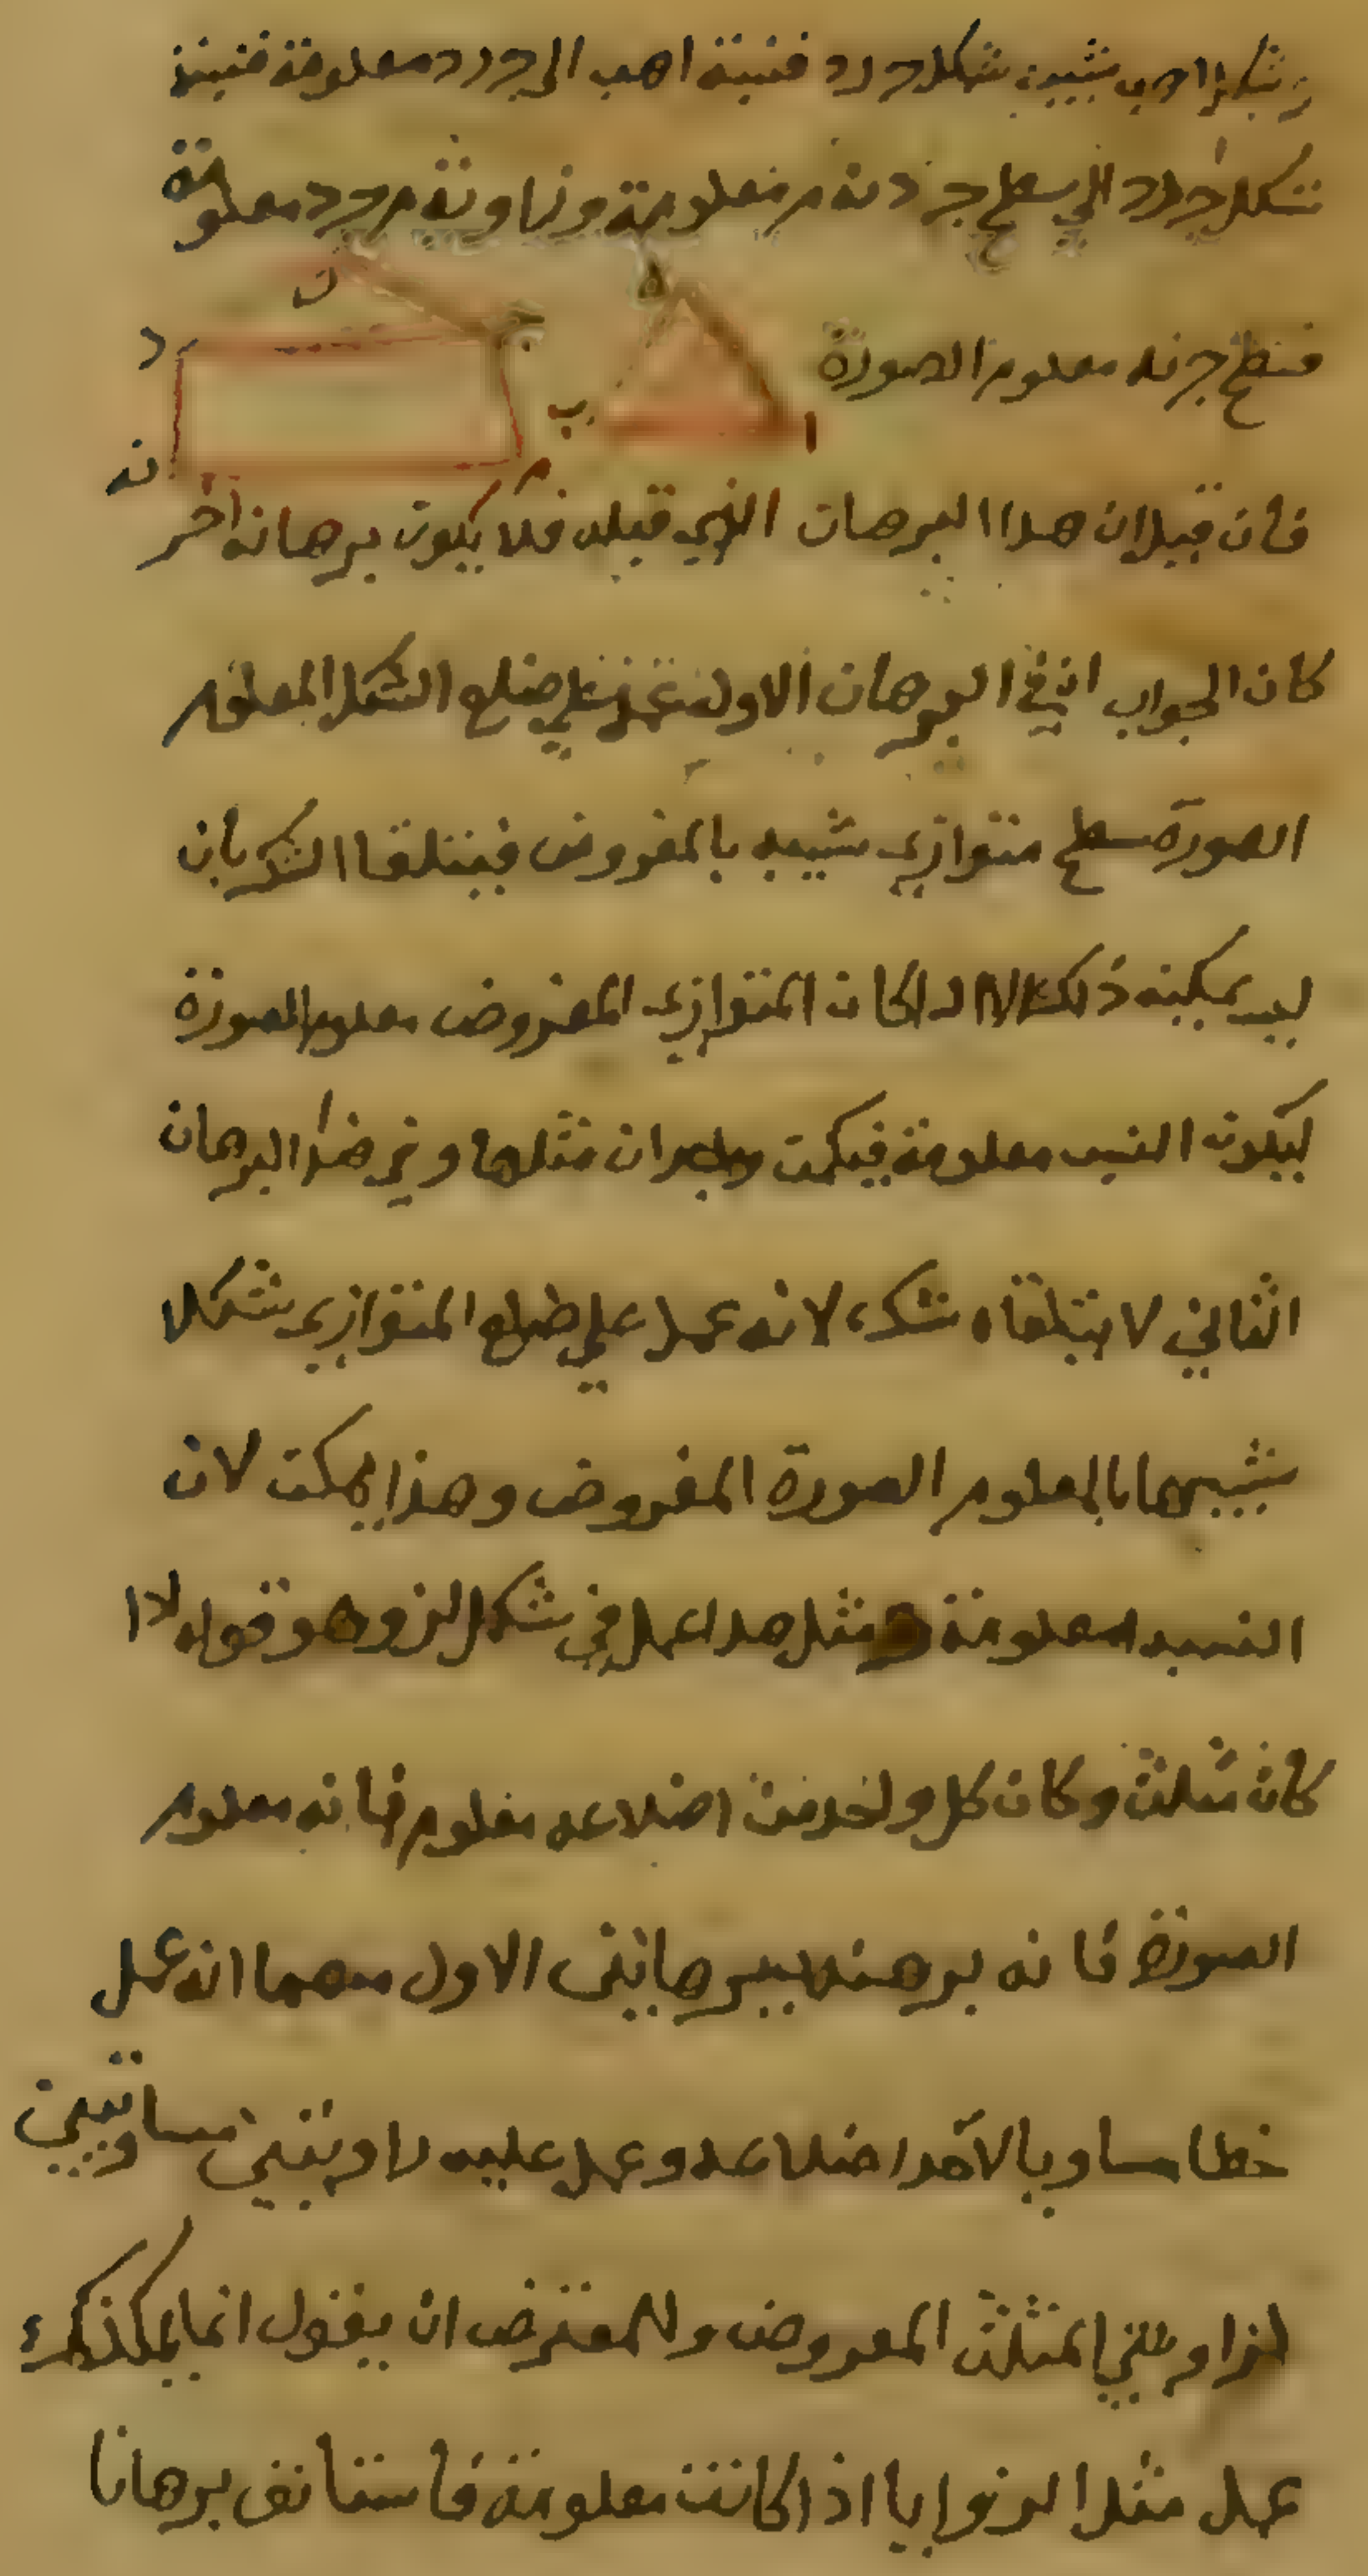 وشكل اهب شبيه بشكل جرد فنسبة اهب الى جرد معلومة فنسبة
شكل جرد الى سطح جد نه م معلومة وزاوية م جد معلومة
فسطح جد نه معلوم الصورة
ں
د
ب
ا
نه
م
فان قيل ان هدا البرهان الذي قبله فلا يكون برهانه اخر
كان الجواب ان في البرهان الاول نعمل على ضلع الشكل المعلوم
الصورة سطح متوازي شبيه بالمفروض فيتلقا الشك بان
ليس يمكنه ذلك الا اذا كان المتوازي المفروض معلوم الصورة
ليكون النسب معلومة فيمكن ان مثلها وفي هذا البرهان
الثاني لا يتلقاه شك لانه عمل على ضلع المتوازي شكلا
شبيها بالمعلوم الصورة المفروض وهذا يمكن لان
النسبه معلومة ومثل هدا عمل في شكل لز وهو قوله لاا
كان مثلث وكان كل واحد من اضلاعه معلوم فانه معلوم
الصورة فانه برهنه ببرهانين الاول منهما انه عمل
خطا مساويا لاحد اضلاعه وعمل عليه زاويتين مساويتين
لزاويتي المثلث المفروض وللمعترض ان يقول انما يمكنك
عمل مثل الزوايا اذا كانت معلومة فاستانف برهانا